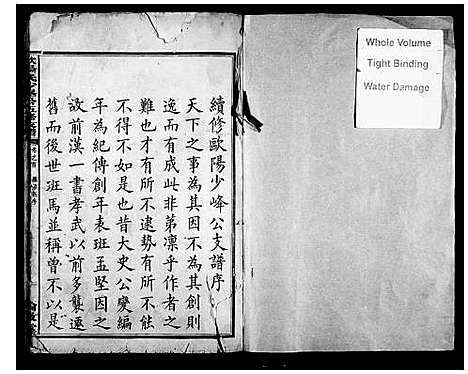 續修歐陽少峰公支譜序
天下之事為其因不為其創則
逸而有成此非第凛乎作者之
難也才有所不逮勢有所不能
不得不如是也昔大史公變編
年為紀傳創年表班孟堅因之
故前漢一書孝武以前多襲遷
舊而後世班馬並稱曾不以是
Whole Volume
Tight Binding
Water Damage